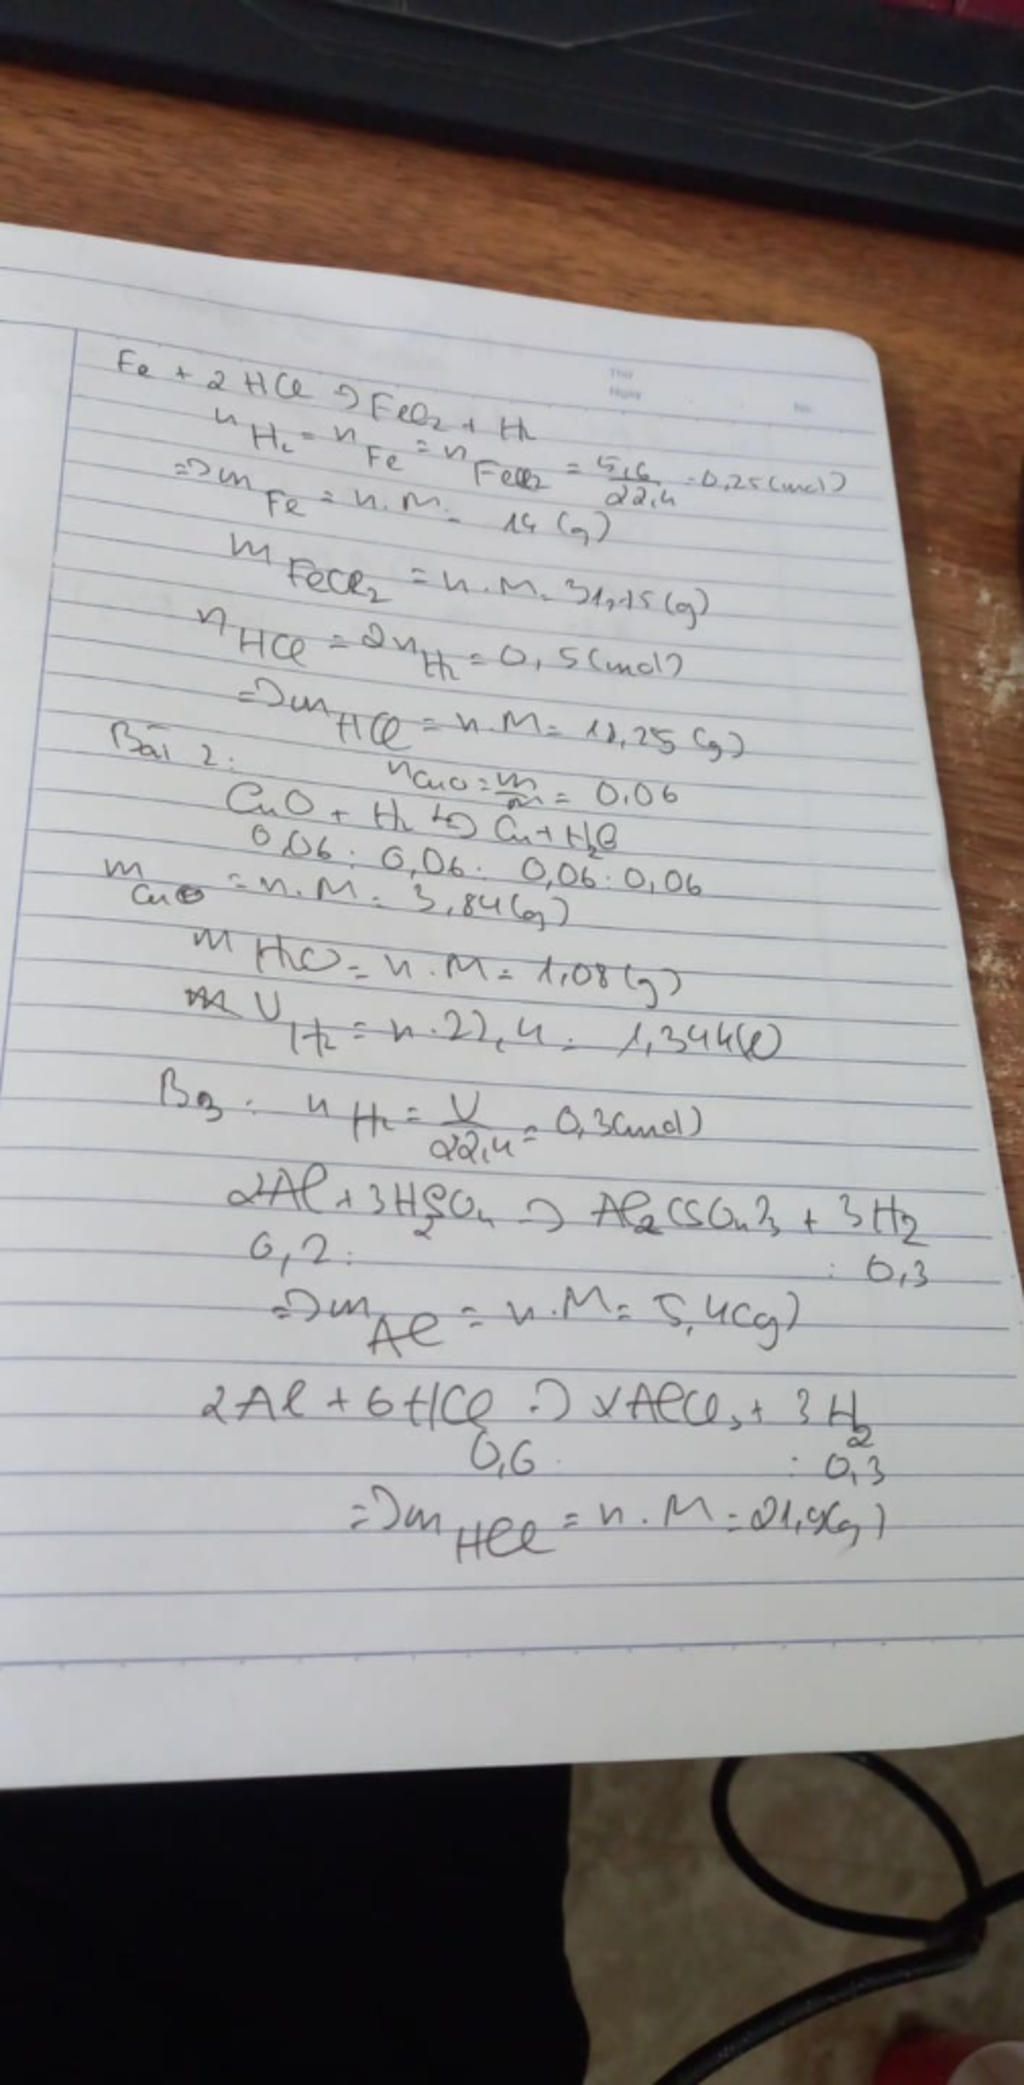 Thứ
Ngày No.
Fe + 2HCl => FeCl2 + H2
nH2 = nFe = nFeCl2 = 5,6/22,4 = 0,25(mol)
=> mFe = n.M = 14(g)
mFeCl2 = n.M = 31,75(g)
nHCl = 2nH2 = 0,5(mol)
=> mHCl = n.M = 18,25(g)
Bài 2: nCuO = m/M = 0.06
CuO + H2 to=> Cu + H2O
0,06 : 0,06 : 0,06 : 0,06
mCu = n.M = 3,84(g)
mH2O = n.M = 1,08(g)
VH2 = n.22,4 = 1,344(l)
B3: nH2 = V/22,4 = 0,3(mol)
2Al + 3H2SO4 => Al2(SO4)3 + 3H2
0,2 : : 0,3
=> mAl = n.M = 5,4(g)
2Al + 6HCl => 2AlCl3 + 3H2
0,6 : 0,3
=> mHCl = n.M = 21,9(g)